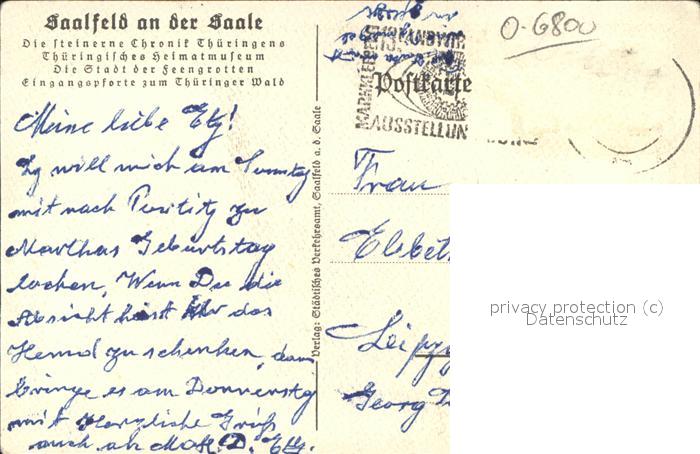 Saalfeld an der Saale
Die steinerne Chronik Thüringens
Thüringisches Heimatmuseum
Die Stadt der Feengrotten
Eingangspforte zum Thüringer Wald
O-6800
Postkarte
MARKKLEEBERG
AUSSTELLUN
Meine liebe
will mich am Sonntag
mit nach zu
Marthas Geburtstag
locken, Wenn Du die
Absicht hast ihr das
Hemd zu schenken, dann
bringe es am Donnerstg
mit Herzliche Grüß
auch an
Verlag: Städtisches Verkehrsamt, Saalfeld a. d. Saale
Frau
Leipz
Georg
privacy protection (c)
Datenschutz